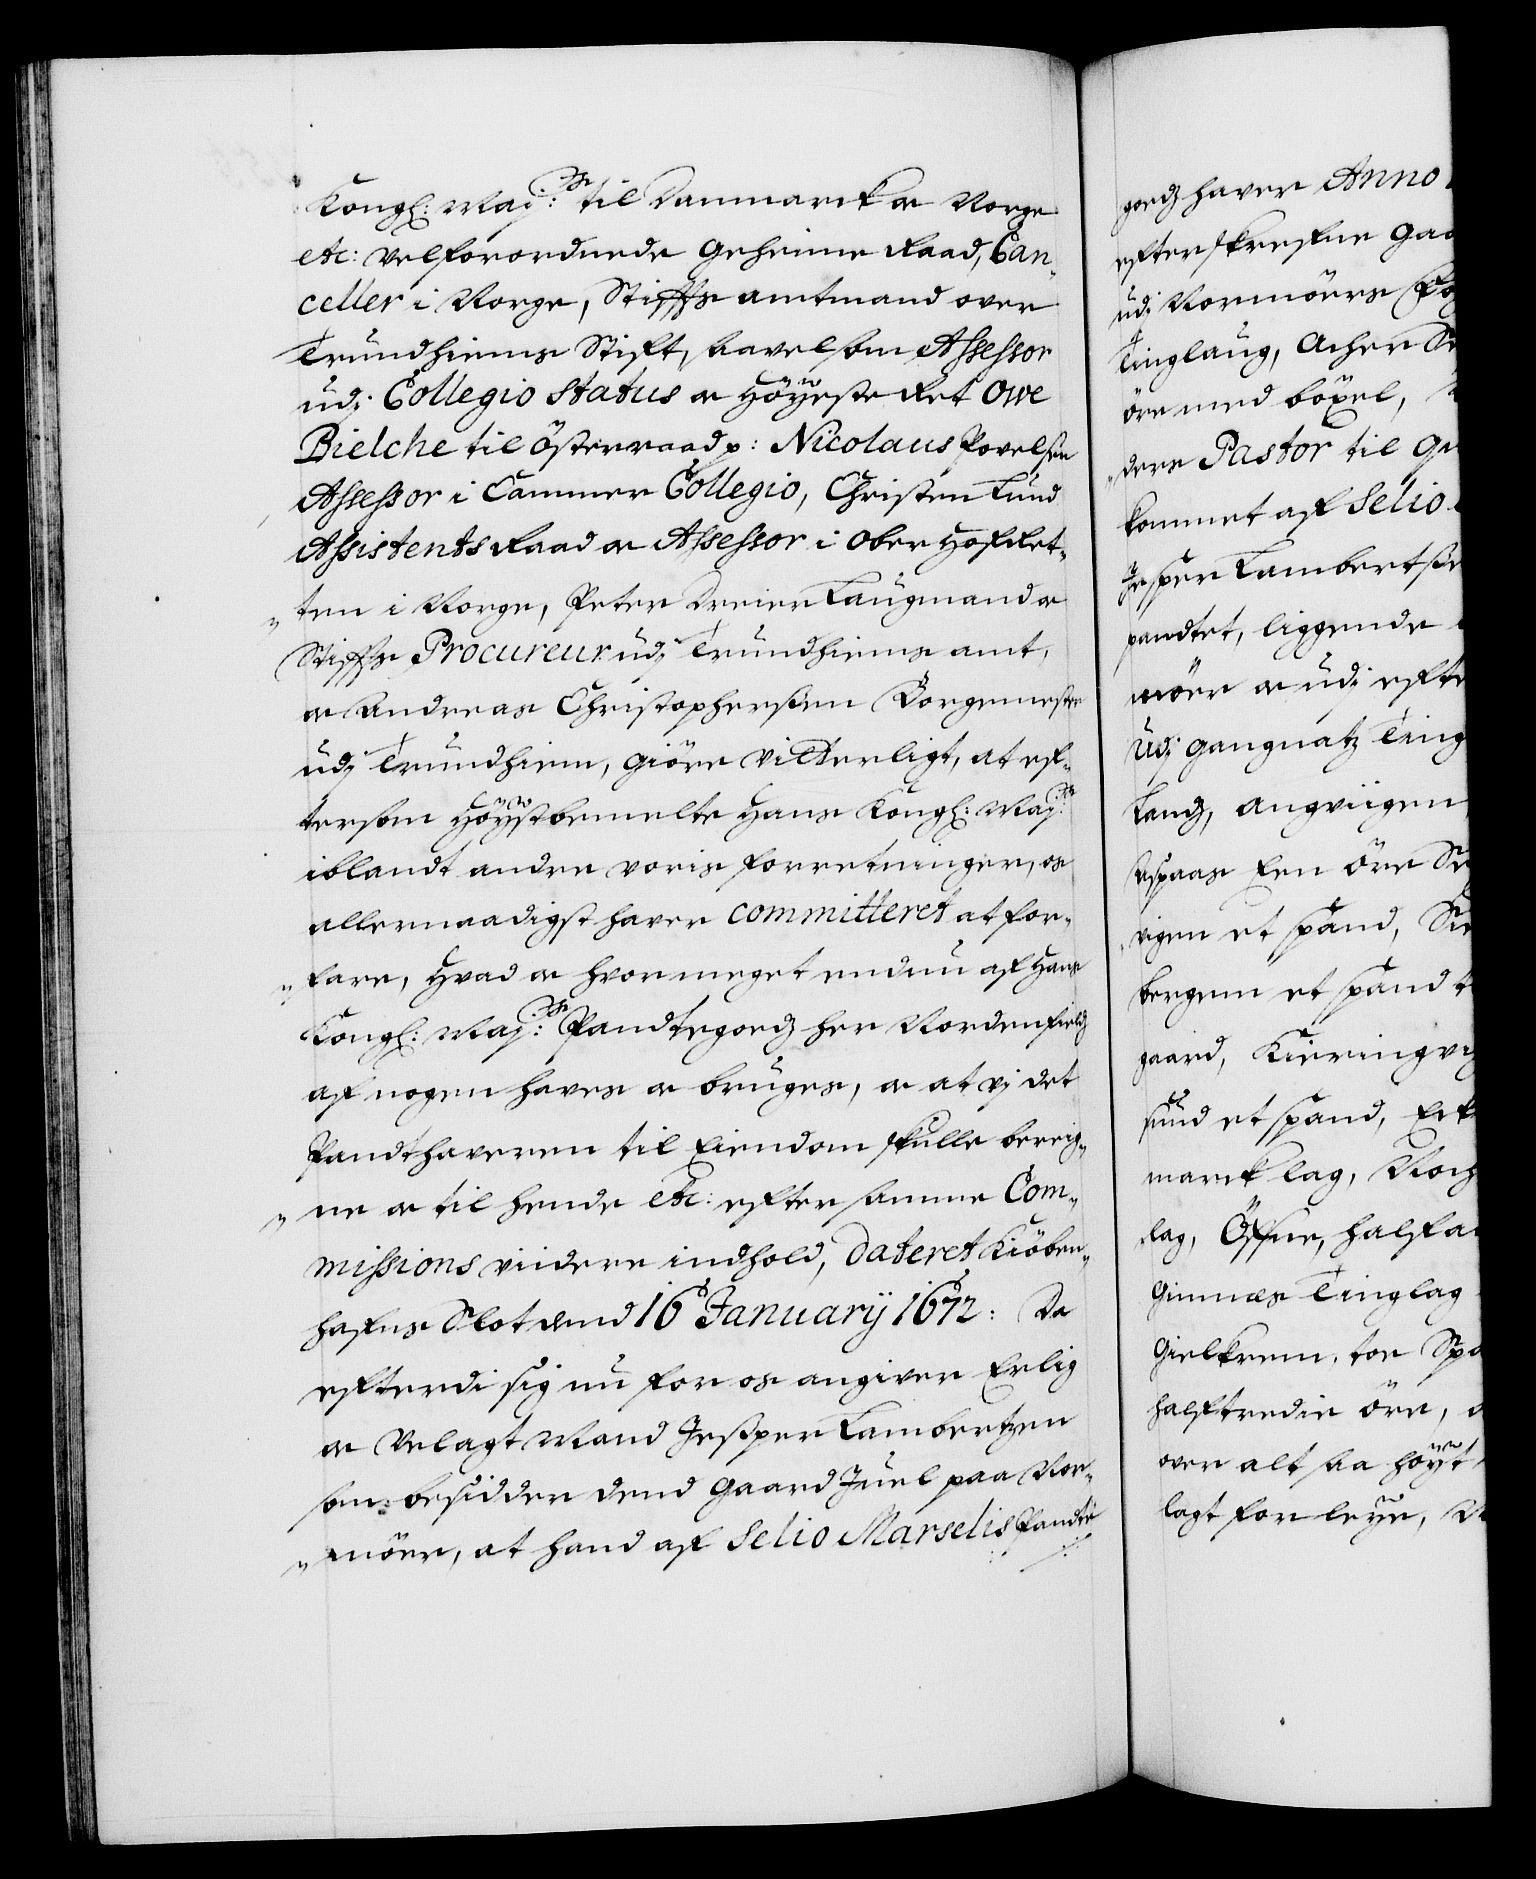 Kongl: Maj:ts til Danmarck oc Norge
etc: velforordnede Geheime Raad, Can„
celler i Norge, Stiffts amtmand over
Trundhiems Stift, saavelsom Assessor
udj Collegio Status oc Höyeste Ret Owe
Bielche til Österraad p: Nicolaus Povelsen
Assessor i Cammer Collegio, Christen Lund
Assistents Raad oc Assessor i Ober HofRet„
„ten i Norge, Peter Dreier Laugmand oc
Stiffts Procureur udj Trundhiems amt,
oc Andreas Christophersen Borgemester
udj Trundhiem, giöre vitterligt, at ef„
tersom Höystbemelte Hans Kongl: Maj:ts
iblandt andre voris forretninger, os
allernaadigst haver committeret at for„
„fare, Hvad oc hvor meget endnu af Hans
Kongl: Maj:ts Pandtegodz her Nordenfieldz
af nogen haves oc bruges, oc at vj det
Pandthaveren til Eiendom skulle bereig„
„ne oc til hende etc: efter samme Com„
missions viidere indhold, dateret Kiöben„
hafns Slot dend 16 January 1672: Da
efterdi sig nu for os angiver Erlig
oc Velagt Mand Jesper Lambertzen
som besidder dend Gaard Juel paa Nor„
„möer, at hand af Selio Marselis Pandte
godz haver Anno
efterskrefne Gaa
udj Normöers Fog
Tinglaug, Acher
öre med böxel,
„dere Pastor til
kommet af Selio
Jesper Lambertsen
pandtet, liggende
möer oc udj efte
Udj Gangnatz Ting
Landz, Angviigen
Aspaas Een öre
„vigen et spand,
bergem et spand
gaard, Kieringvig
sund et spand,
marck lag,
lag, Öffue, halfa
Gimnæs Tinglag
Gielkrem, toe Spa
halftredie öre,
over alt saa höyt
lagt for leye,